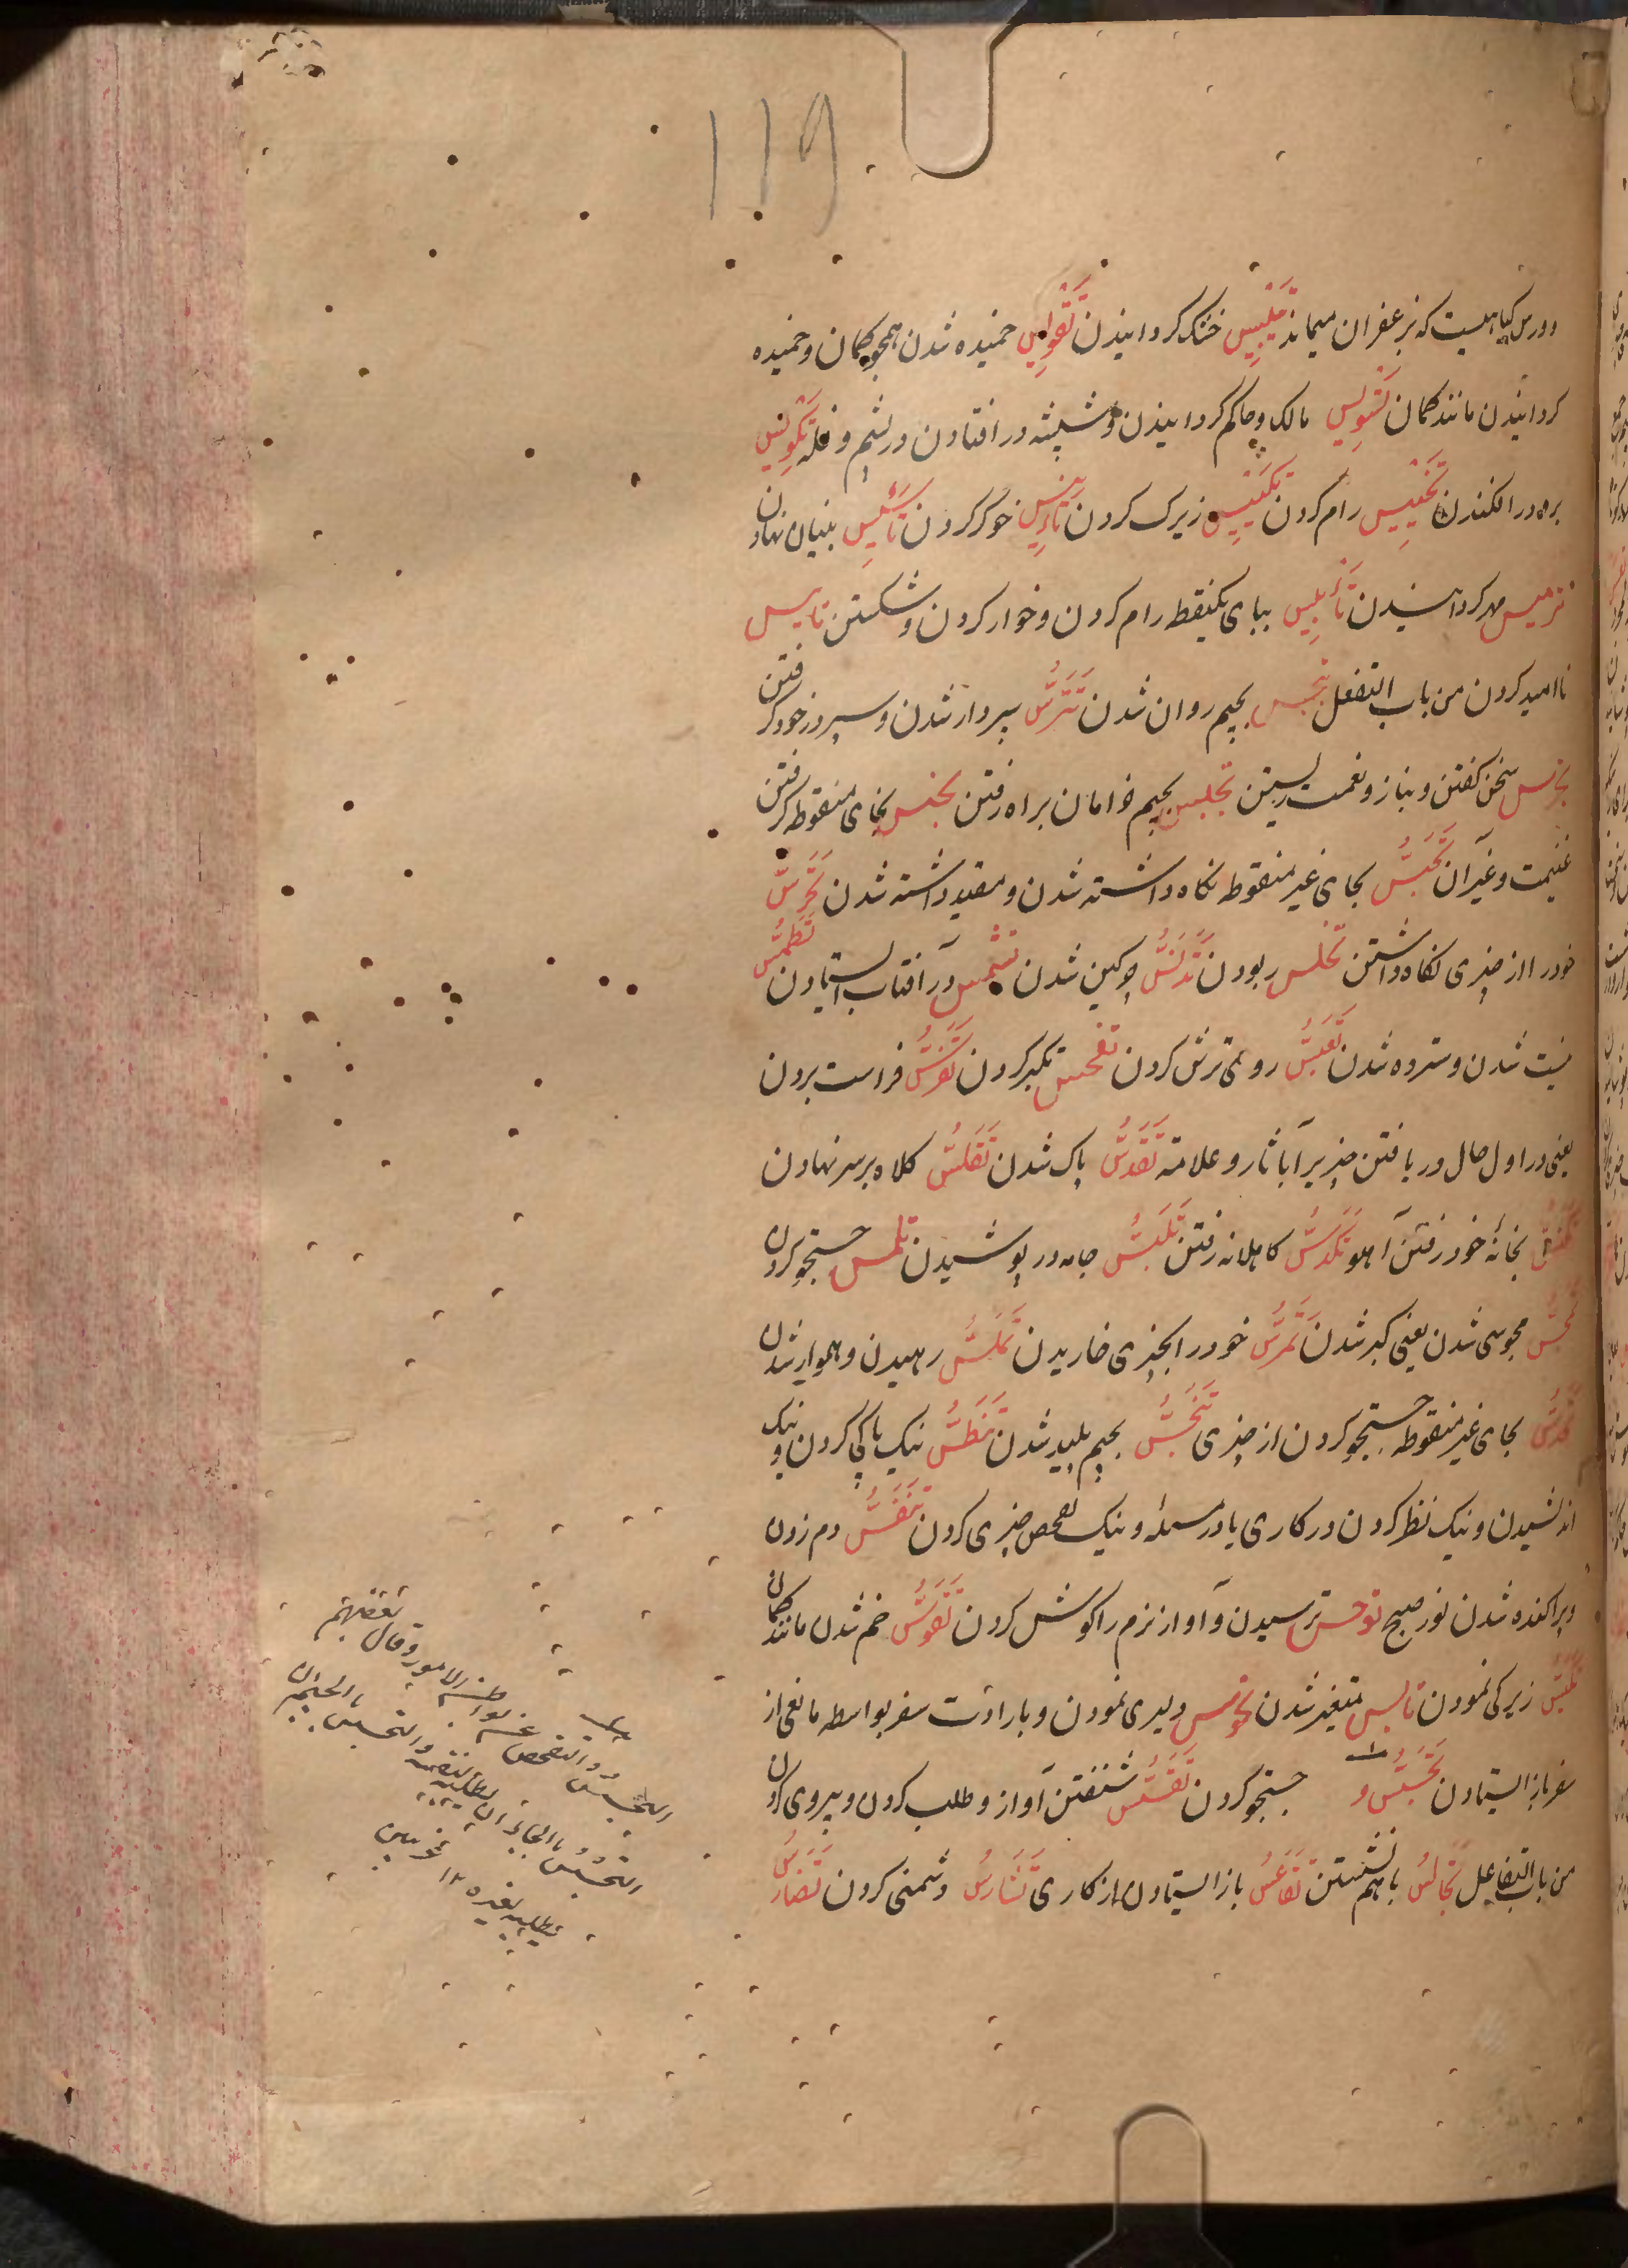 119
وورس گیاهیست که بزعفران میماند تَیْبِیس خشک گردانیدن تَقْوِیس خمیده شدن همچو کمان و خمیده
گردانیدن مانند کمان تَسْوِیس مالک و حاکم گردانیدن و شپشه در افتادن در پشم و غله تَکْوِیس
در افکندن تَخْیِیس رام کردن تَکْیِیس زیرک کردن خوگر کردن تَأسِیس بنیان نهادن
گردانیدن تَأبِیس ببای یکنقطه رام کردن و خوار کردن و شکستن تاییس
ناامید کردن من باب التفعل تبجس بجیم روان شدن تَتَرُّس سپردار شدن و سپر در خود گرفتن
سخن گفتن و بناز و نعمت زیستن بجیم خرامان براه رفتن تخبس بخای منقوطه گرفتن
غنیمت و غیر آن تَحَبُّس بحای غیر منقوطه نگاه داشته شدن و مقید داشته شدن تَحَرُّس
خود را از چیزی نگاه داشتن تخلس ربودن تَدَنُّس چرکین شدن تشمس در آفتاب ایستادن تَطَمُّس
نیست شدن و سترده شدن تَعَبُّس روی ترش کردن تفحس تکبر کردن تَفَرُّس فراست بردن
یعنی در اول حال دریافتن چیزیرا بآثار و علامة تَقَدُّس پاک شدن تَقَلُّس کلاه بر سر نهادن
تَکَنُّس بخانهٔ خود رفتن آهو تَکَدُّس کاهلانه رفتن تَلَبُّس جامه در پوشیدن تلمس جستجو کردن
تَمَجُّس مجوسی شدن یعنی گبر شدن تَمَرُّس خود را بچیزی خاریدن تَمَلُّس رهیدن و هموار شدن
بحای غیر منقوطه جستجو کردن از چیزی تَنَجُّس بجیم پلید شدن تَنَطُّس نیک پاکی کردن و نیک
اندیشیدن و نیک نظر کردن در کاری یا در مسئله و نیک تفحص چیزی کردن تَنَفُّس دم زدن
و پراکنده شدن نور صبح توجس ترسیدن و آواز نرم را گوش کردن تَقَوُّس خم شدن مانند کمان
تَکَیُّس زیرکی نمودن متغیر شدن دلیری نمودن و بارادت سفر بواسطه مانعی از
سفر باز ایستادن تَجَسُّس و جستجو کردن تَقَسُّس شنفتن آواز و طلب کردن و پیروی کردن
من باب التفاعل تَجَالُس با هم نشستن تَقَاعُس باز ایستادن از کاری تَشَارُس دشمنی کردن تَضَارُس
التجسس التفحص عن بواطن الامور وقال بعضهم
التجسس بالجیم ان یطلبه لنفسه والتحسس بالحا
یطلبه لغیره ١٢